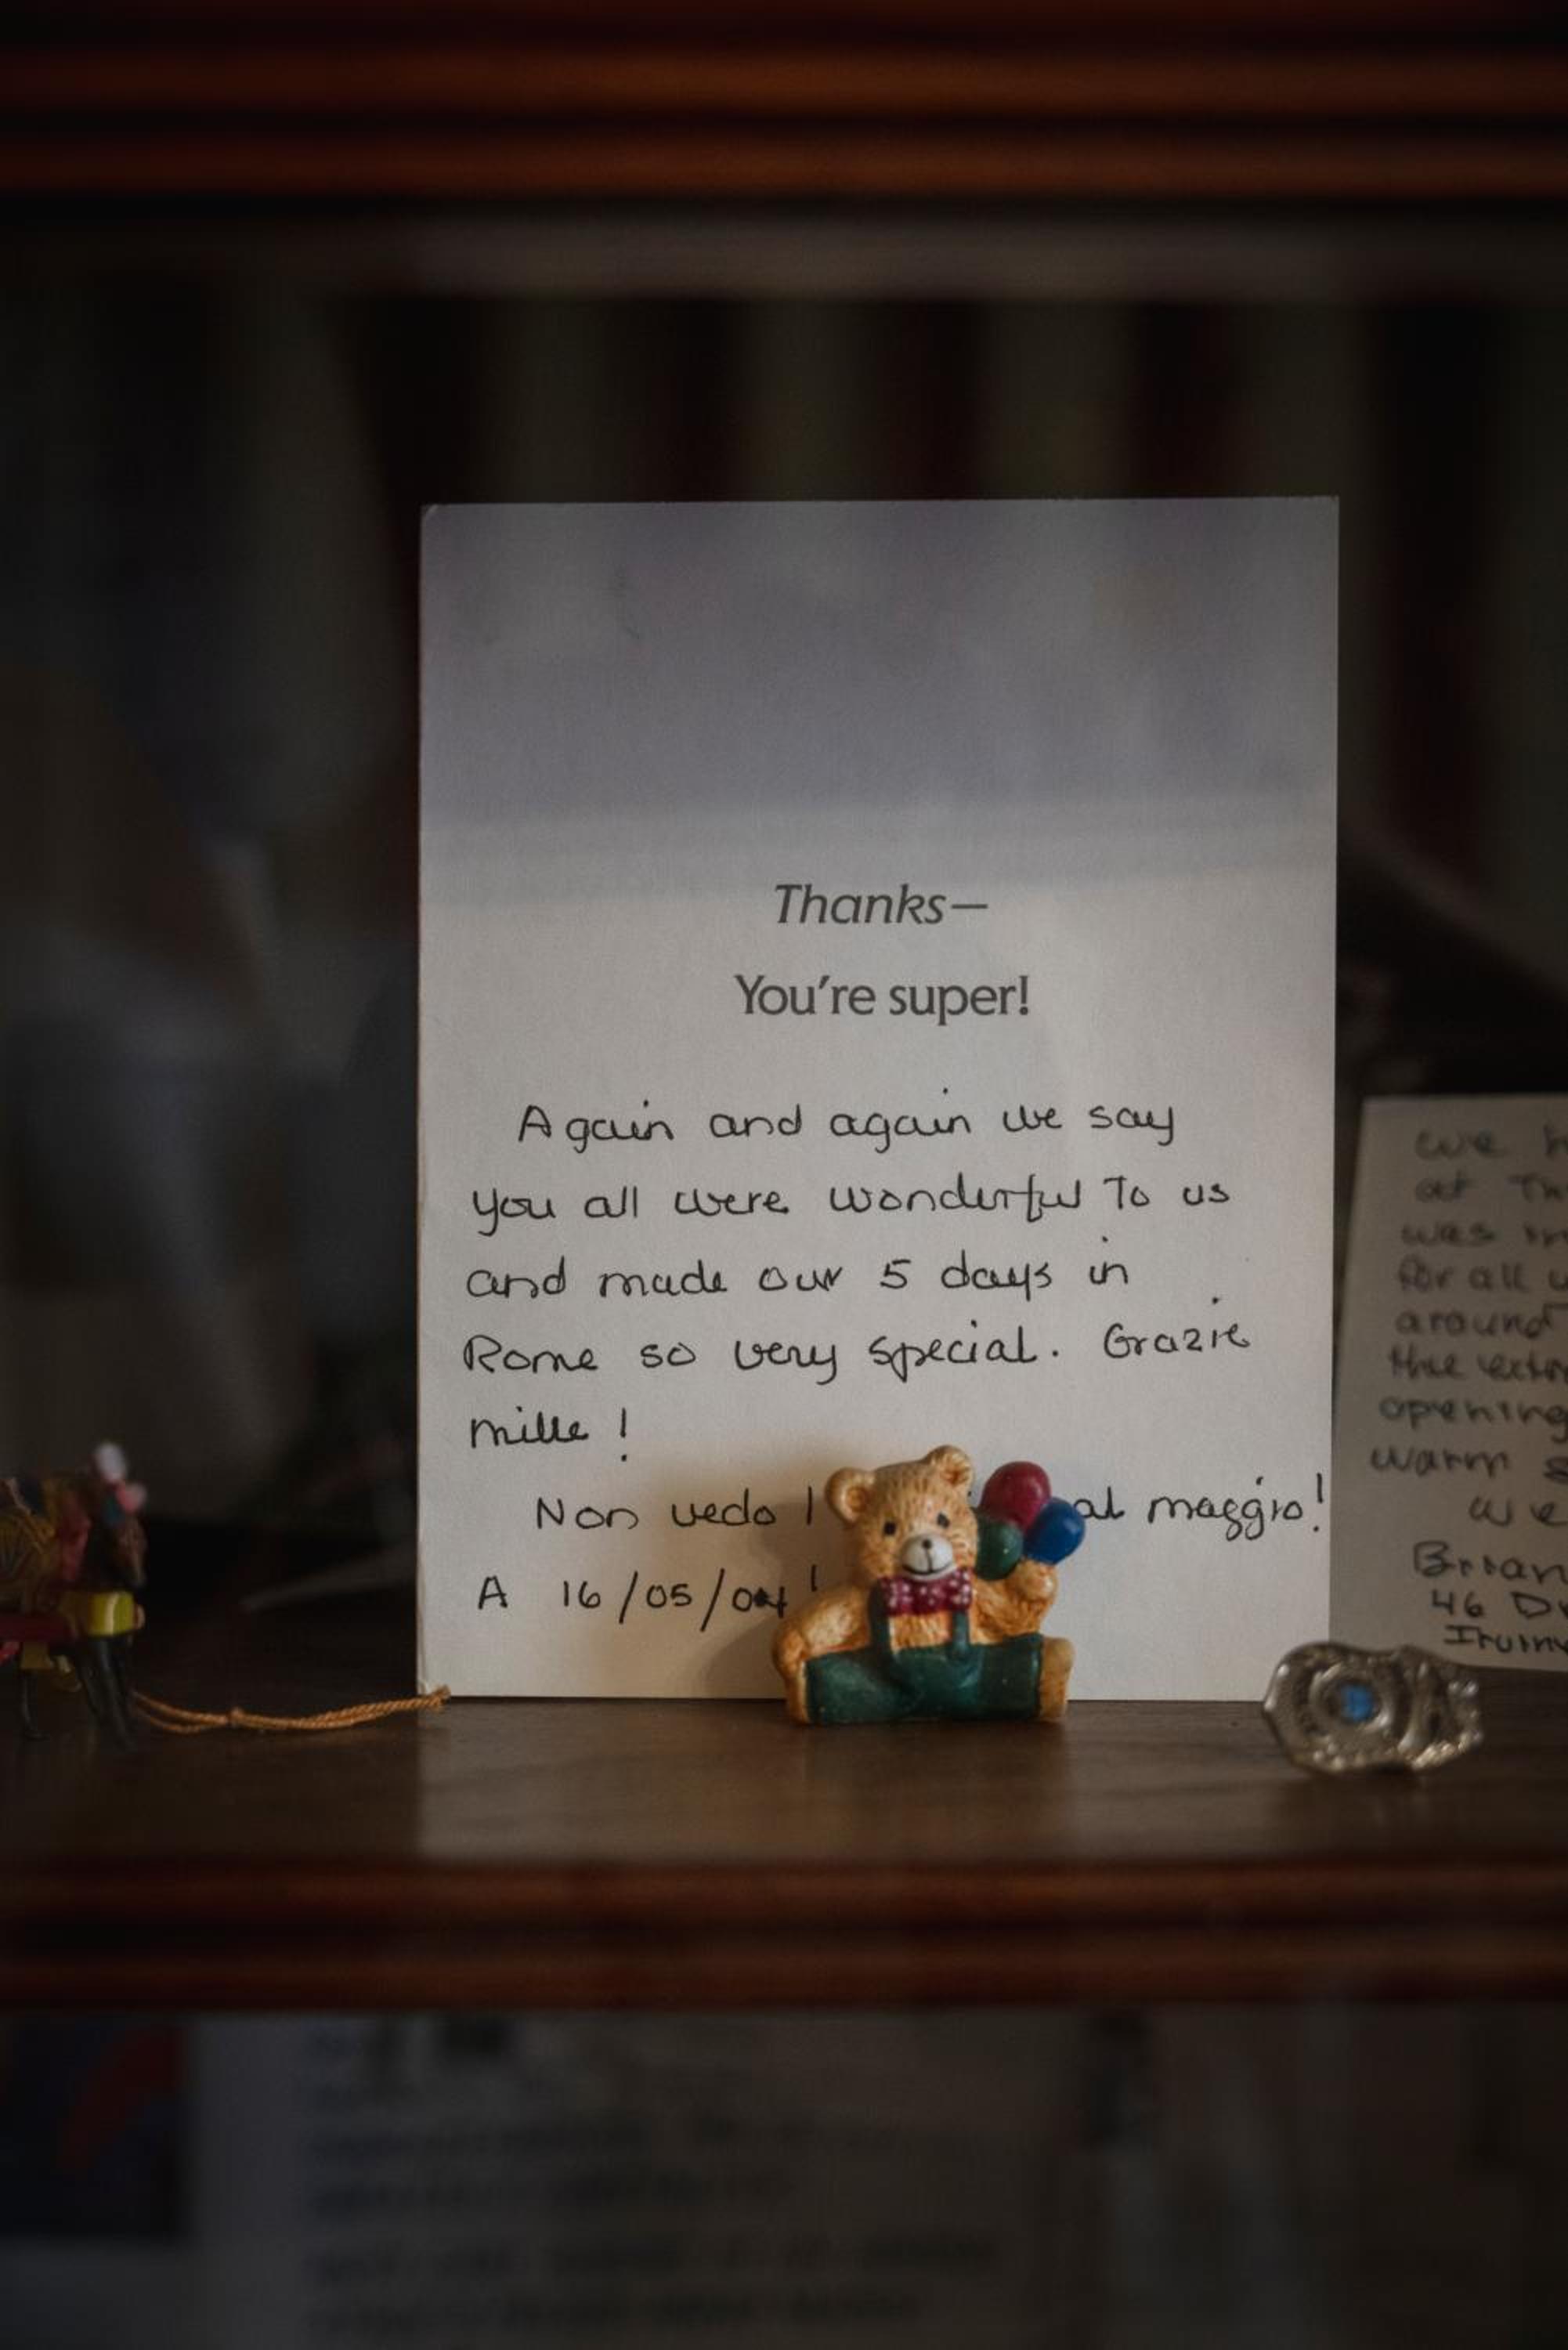 Thanks—
You're super!
Again and again we say
you all were wonderful to us
and made our 5 days in
Rome so very special. Grazie
mille!
Non vedo l al maggio!
A 16/05/04!
we
at
was
for all
around
the
opening
warm
we
Brian
46